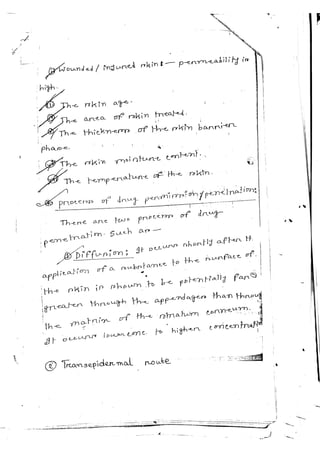 Wounded / Injured skin :- permeability is
high.
The skin age.
The area of skin treated.
The thickness of the skin barrier
phase.
The skin moisture content.
The temperature of the skin.
process of drug permission/penetration:
There are two process of drug
penetration. Such as -
① Diffusion: It occurs shortly after th
application of a substance to the surface of
the skin is shown to be potentially far
greater through the appendages than throug
the matrix of the stratum corneum.
It occurs lower conc. to higher concentrati
② Transepidermal route